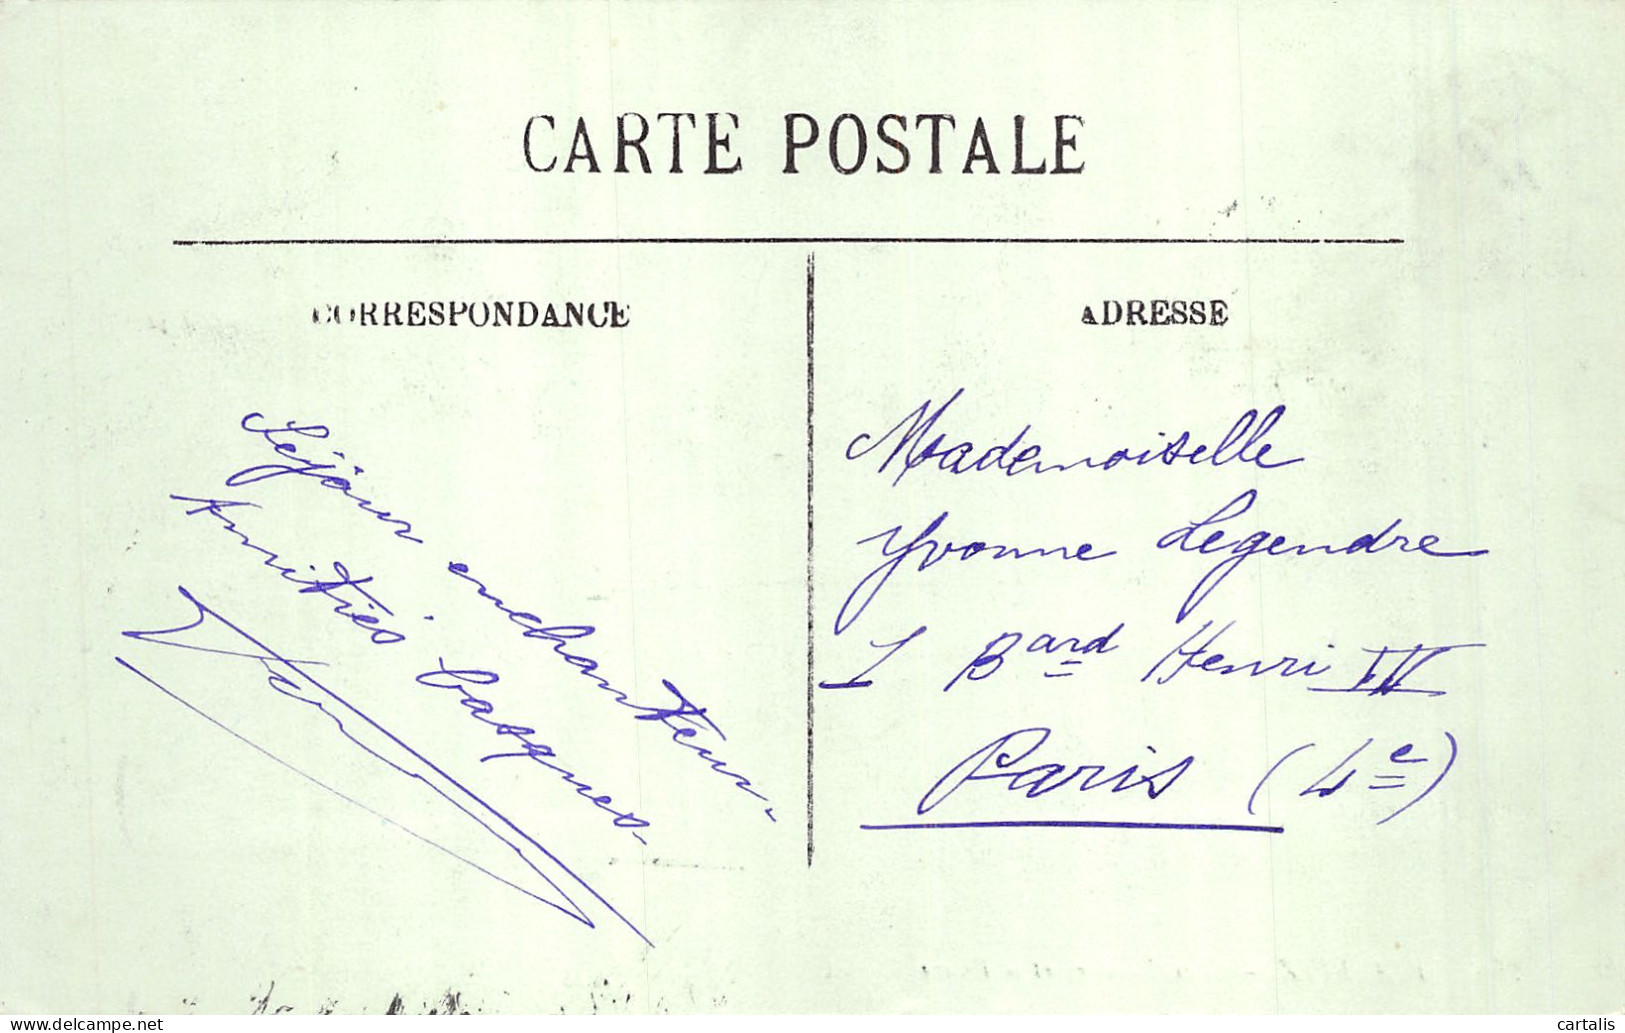 CARTE POSTALE
CORRESPONDANCE
Séjour enchanteur.
Amitiés basques.
ADRESSE
Mademoiselle
Yvonne Legendre
1 Bard Henri IV
Paris (4e)
www.delcampe.net
cartalis